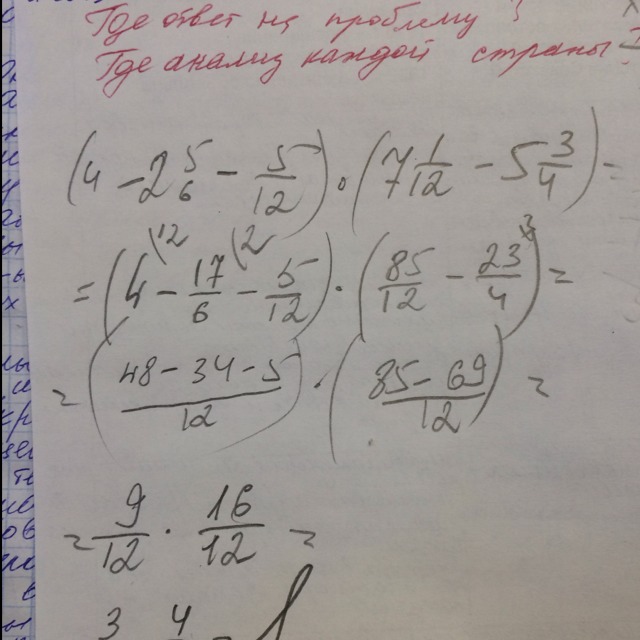 Где ответ на проблему?
Где анализ каждой страны?
(4 - 2 5/6 - 5/12) · (7 1/12 - 5 3/4) =
= (4\12 - 17/6\2 - 5/12) · (85/12 - 23/4\3) =
= (48 - 34 - 5/12) · (85 - 69/12) =
= 9/12 · 16/12 =
3 4 = 1